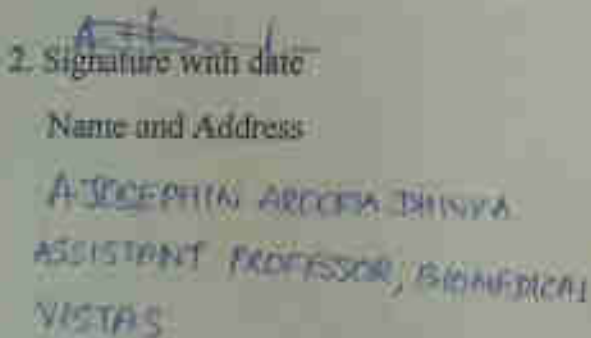 2. Signature with date
Name and Address
A JOSEPHIN AROCKIA DHIVYA
ASSISTANT PROFESSOR, BIOMEDICAL
VISTAS